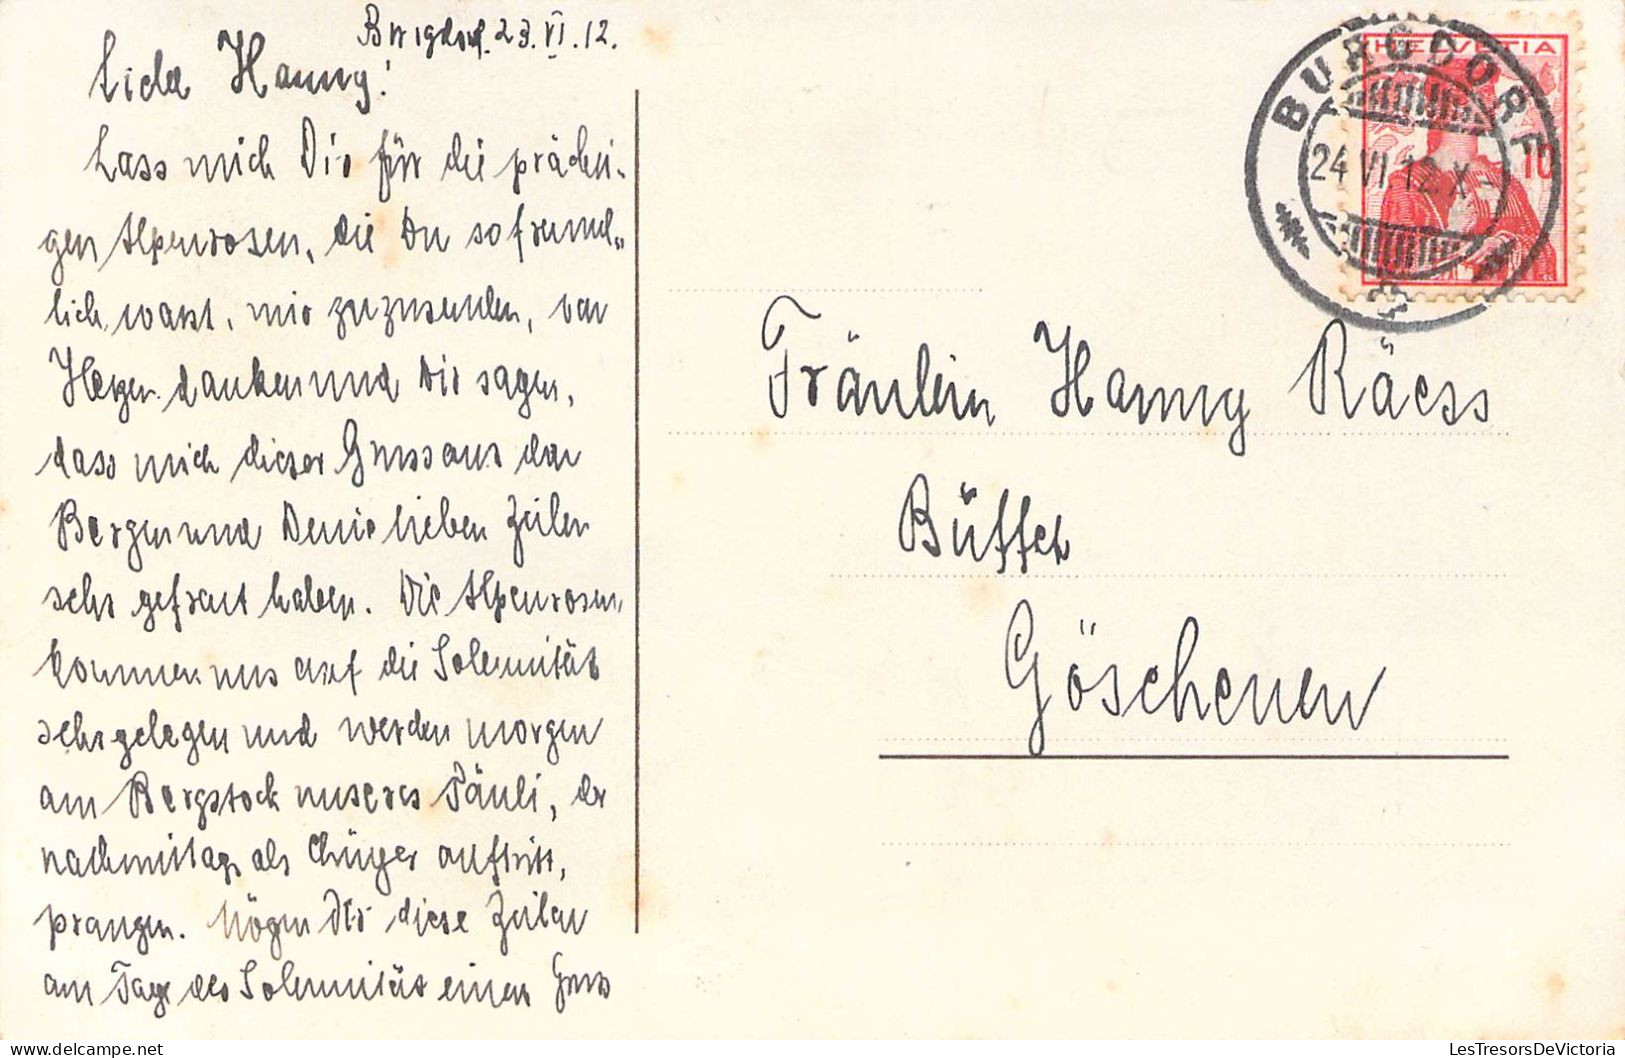 Burgdorf. 23. VI. 12.
Liebe Hanny!
Lass mich Dir für die prächti-
gen Alpenrosen, die Du so freund-
lich warst, mir zuzusenden, von
Herzen danken und Dir sagen,
dass mich dieser Gruss aus den
Bergen und Deine lieben Zeilen
sehr gefreut haben. Die Alpenrosen
kommen uns auf die Solennität
sehr gelegen und werden morgen
am Bergstock unseres Päuli, der
nachmittags als auftritt,
prangen. Mögen Dir diese Zeilen
am Tage der Solennität einen Gruss
HELVETIA
10
BURGDORF
24 VI 12. X-
Fräulein Hanny Räess
Büffet
Göschenen
LesTresorsDeVictoria